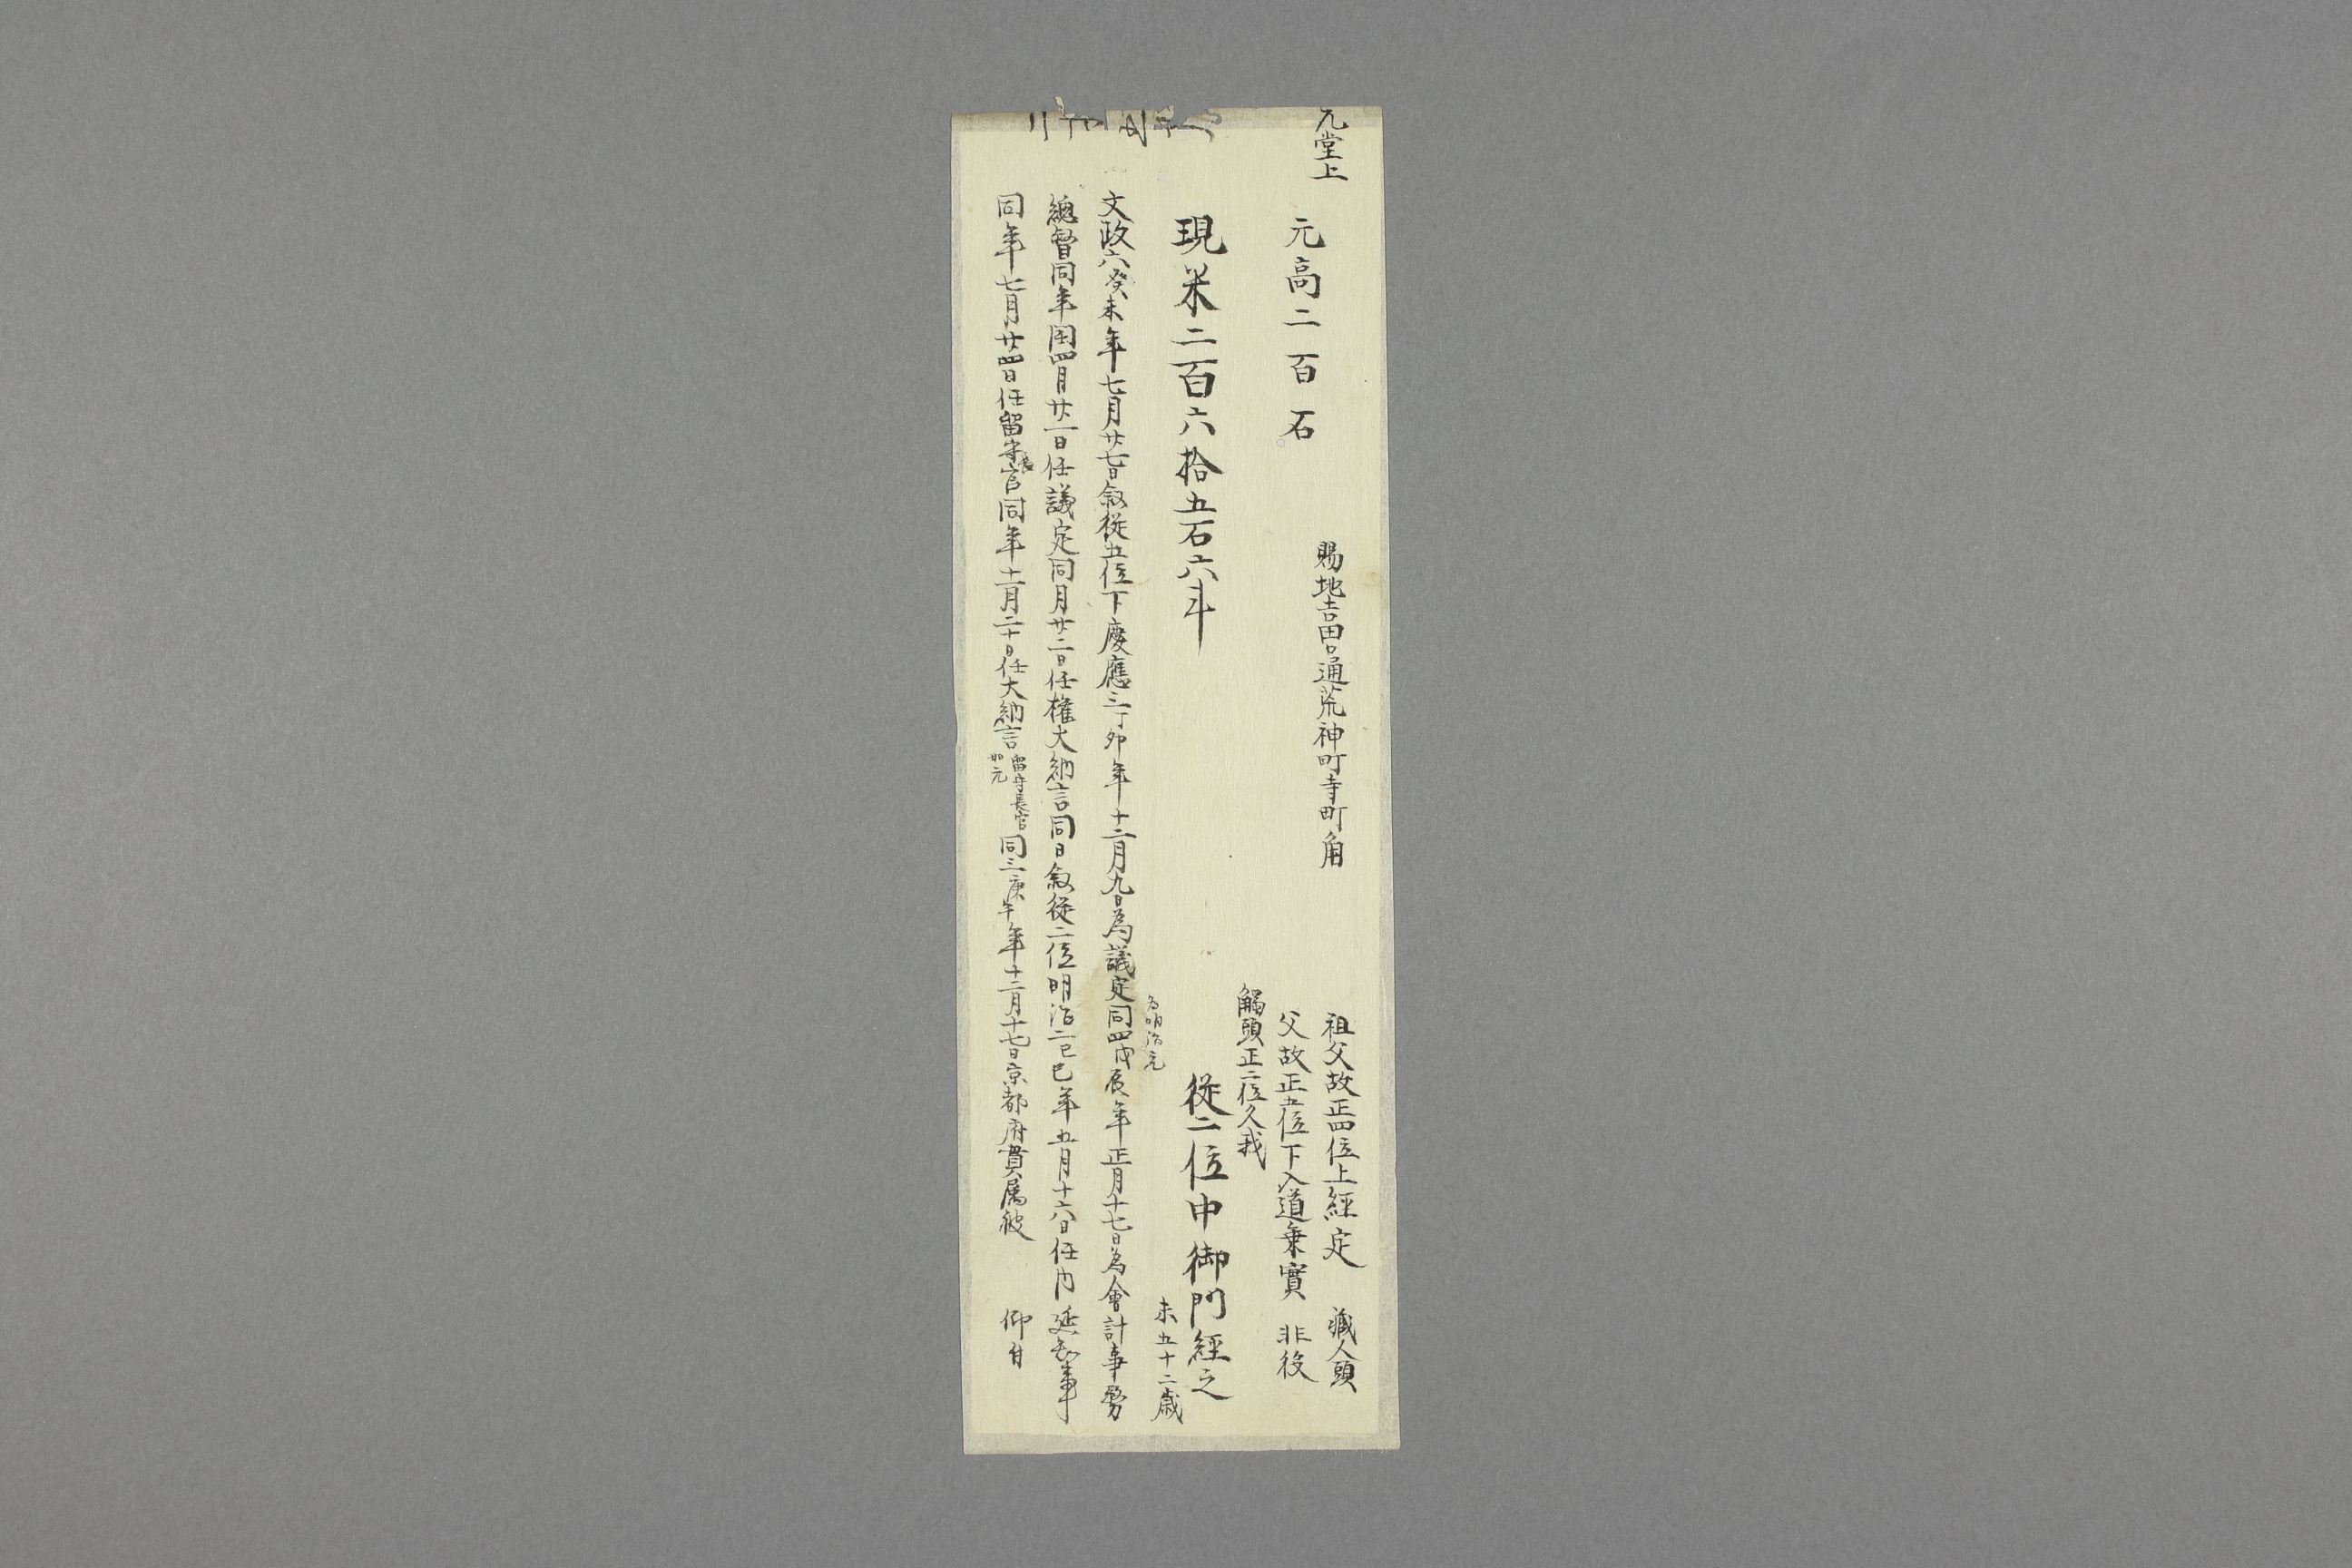 元堂上
元高二百石
賜地吉田口通荒神町寺町角
祖父故正四位上經定 藏人頭
父故正五位下入道乘實 非役
觸頭正二位久我
現米二百六拾五石六斗
從二位中御門經之
未五十二歳
文政六癸未年七月廿七日敘從五位下慶應三丁卯年十二月九日為議定同四戊辰年正月十七日為會計事務
為明治元
總督同年閏四月廿一日任議定同月廿二日任權大納言同日敘從二位明治二己巳年五月十六日任内廷知事
同年七月廿四日任留守長官同年十一月二十日任大納言留守長官如元同三庚午年十二月十七日京都府貫属被 仰付